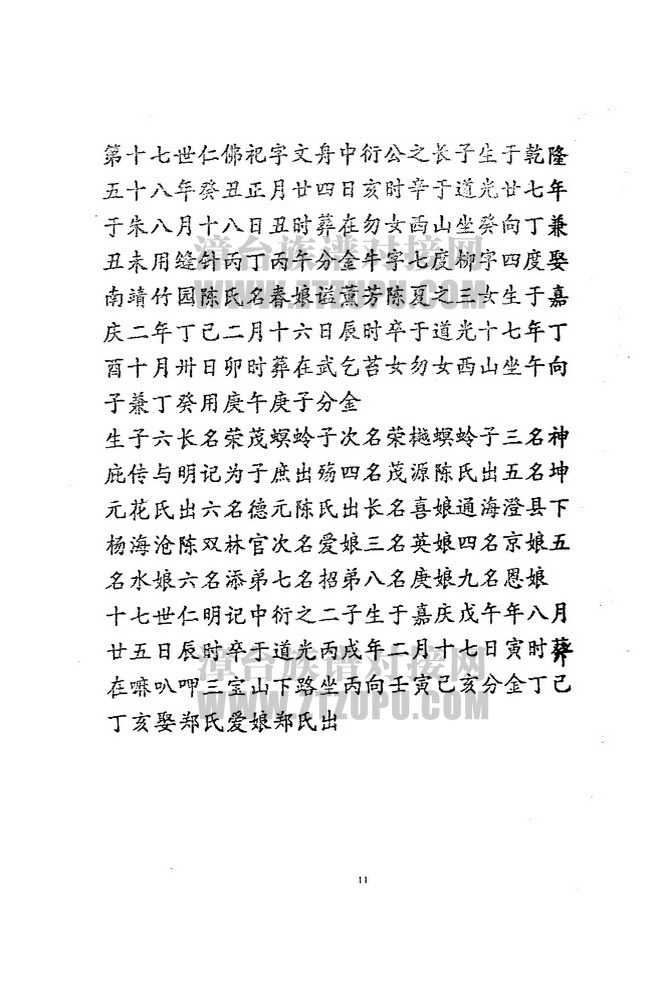 第十七世仁佛祀字文舟中衍公之长子生于乾隆
五十八年癸丑正月廿四日亥时辛于道光廿七年
于朱八月十八日丑时葬在勿女西山坐癸向丁兼
丑未用缝针丙丁丙午分金牛字七度柳字四度娶
南靖竹园陈氏名春娘谥薰芳陈夏之三女生于嘉
庆二年丁己二月十六日辰时卒于道光十七年丁
酉十月卅日卯时葬在武乞苔女勿女西山坐午向
子兼丁癸用庚午庚子分金
生子六长名荣茂螟蛉子次名荣樾螟蛉子三名神
庇传与明记为子庶出殇四名茂源陈氏出五名坤
元花氏出六名德元陈氏出长名喜娘通海澄县下
杨海沧陈双林官次名爱娘三名英娘四名京娘五
名水娘六名添弟七名招弟八名庚娘九名恩娘
十七世仁明记中衍之二子生于嘉庆戊午年八月
廿五日辰时卒于道光丙戍年二月十七日寅时葬
在嘛叭呷三宝山下路坐丙向壬寅己亥分金丁己
丁亥娶郑氏爱娘郑氏出
漳台族谱对接网
WWW.ZTZUPU.COM
漳台族谱对接网
WWW.ZTZUPU.COM
11